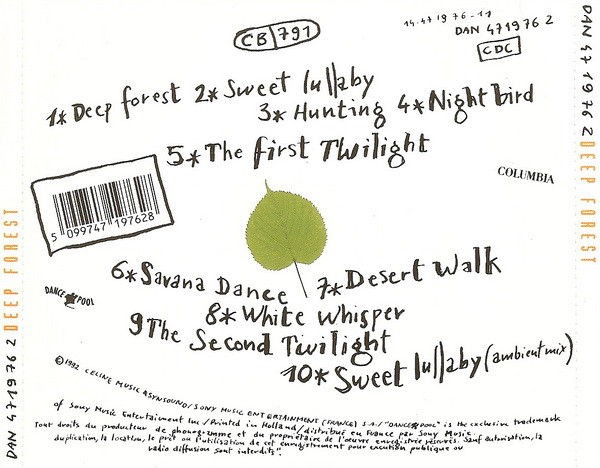 CB 791
14-471976-11
DAN 471976 2
CDC
1* Deep forest 2* Sweet lullaby
3* Hunting 4* Night bird
5* The first Twilight
COLUMBIA
5 099747 197628
6* Savana Dance 7* Desert Walk
DANCE POOL
8* White Whisper
9 The Second Twilight
10* Sweet lullaby (ambient mix)
©1992 CELINE MUSIC & SYNSOUND / SONY MUSIC ENTERTAINMENT (FRANCE) S.A. / "DANCE POOL" is the exclusive trademark
of Sony Music Entertainment Inc / Printed in Holland / distribué en France par Sony Music.
Tout droits du producteur de phonogramme et du propriétaire de l'œuvre enregistrée réservés. Sauf autorisation, la
duplication, la location, le prêt ou l'utilisation de cet enregistrement pour exécution publique ou
radio diffusion sont interdits".
DAN 471976 2 DEEP FOREST
DAN 471976 2 DEEP FOREST